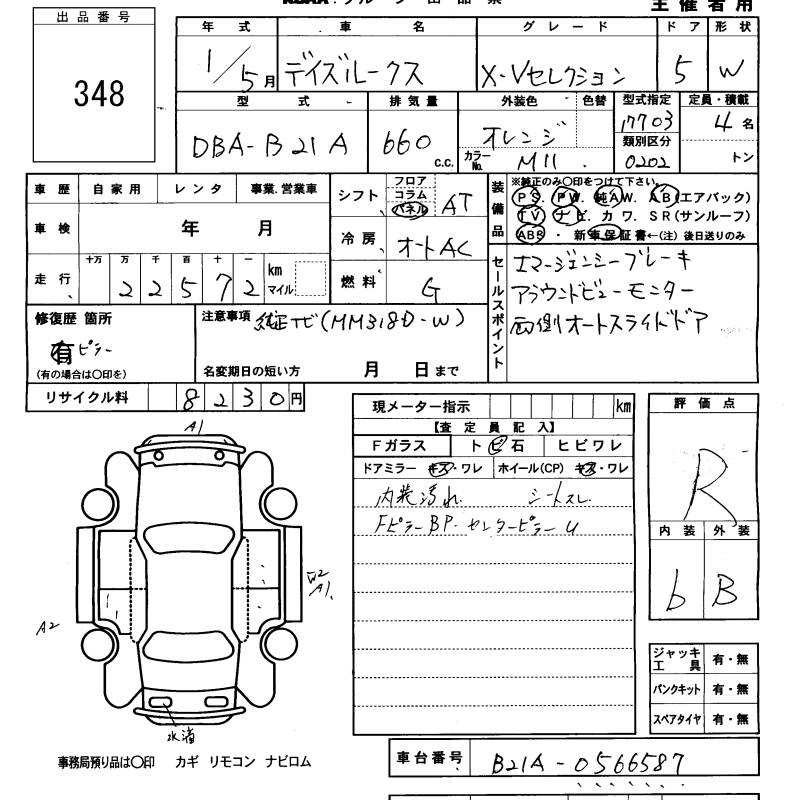 グループ 出品票
主催者用
出品番号
348
年式 車名 グレード ドア 形状
1/5月 デイズルークス X・Vセレクション 5 W
型式 排気量 外装色 色替 型式指定 定員・積載
DBA-B21A 660 c.c. オレンジ 17703 4名
カラーNo. M11 類別区分 0202 トン
車歴 自家用 レンタ 事業.営業車
車検 年 月
走行 十万 万 千 百 十 一
2 2 5 7 2 km マイル
シフト フロア コラム パネル AT
冷房 オートAC
燃料 G
装備品 ※純正のみ〇印をつけて下さい。
PS. PW. 純AW. AB(エアバック)
TV ナビ. カワ. SR(サンルーフ)
ABS ・ 新車保証書←(注)後日送りのみ
セールスポイント
エマージェンシーブレーキ
アラウンドビューモニター
両側オートスライドドア
修復歴 箇所
有 ピラー
(有の場合は〇印を)
注意事項 純ナビ(MM318D-W)
名変期日の短い方 月 日まで
リサイクル料 8230円
現メーター指示 km
【査定員記入】
Fガラス トビ石 ヒビワレ
ドアミラー キズ・ワレ ホイール(CP) キズ・ワレ
内装汚れ シートスレ
FピラーBP. センターピラーU
評価点
R
内装 外装
b B
A1
W2
A1.
A2
水滴
ジャッキ工具 有・無
パンクキット 有・無
スペアタイヤ 有・無
事務局預り品は〇印 カギ リモコン ナビロム
車台番号 B21A-0566587